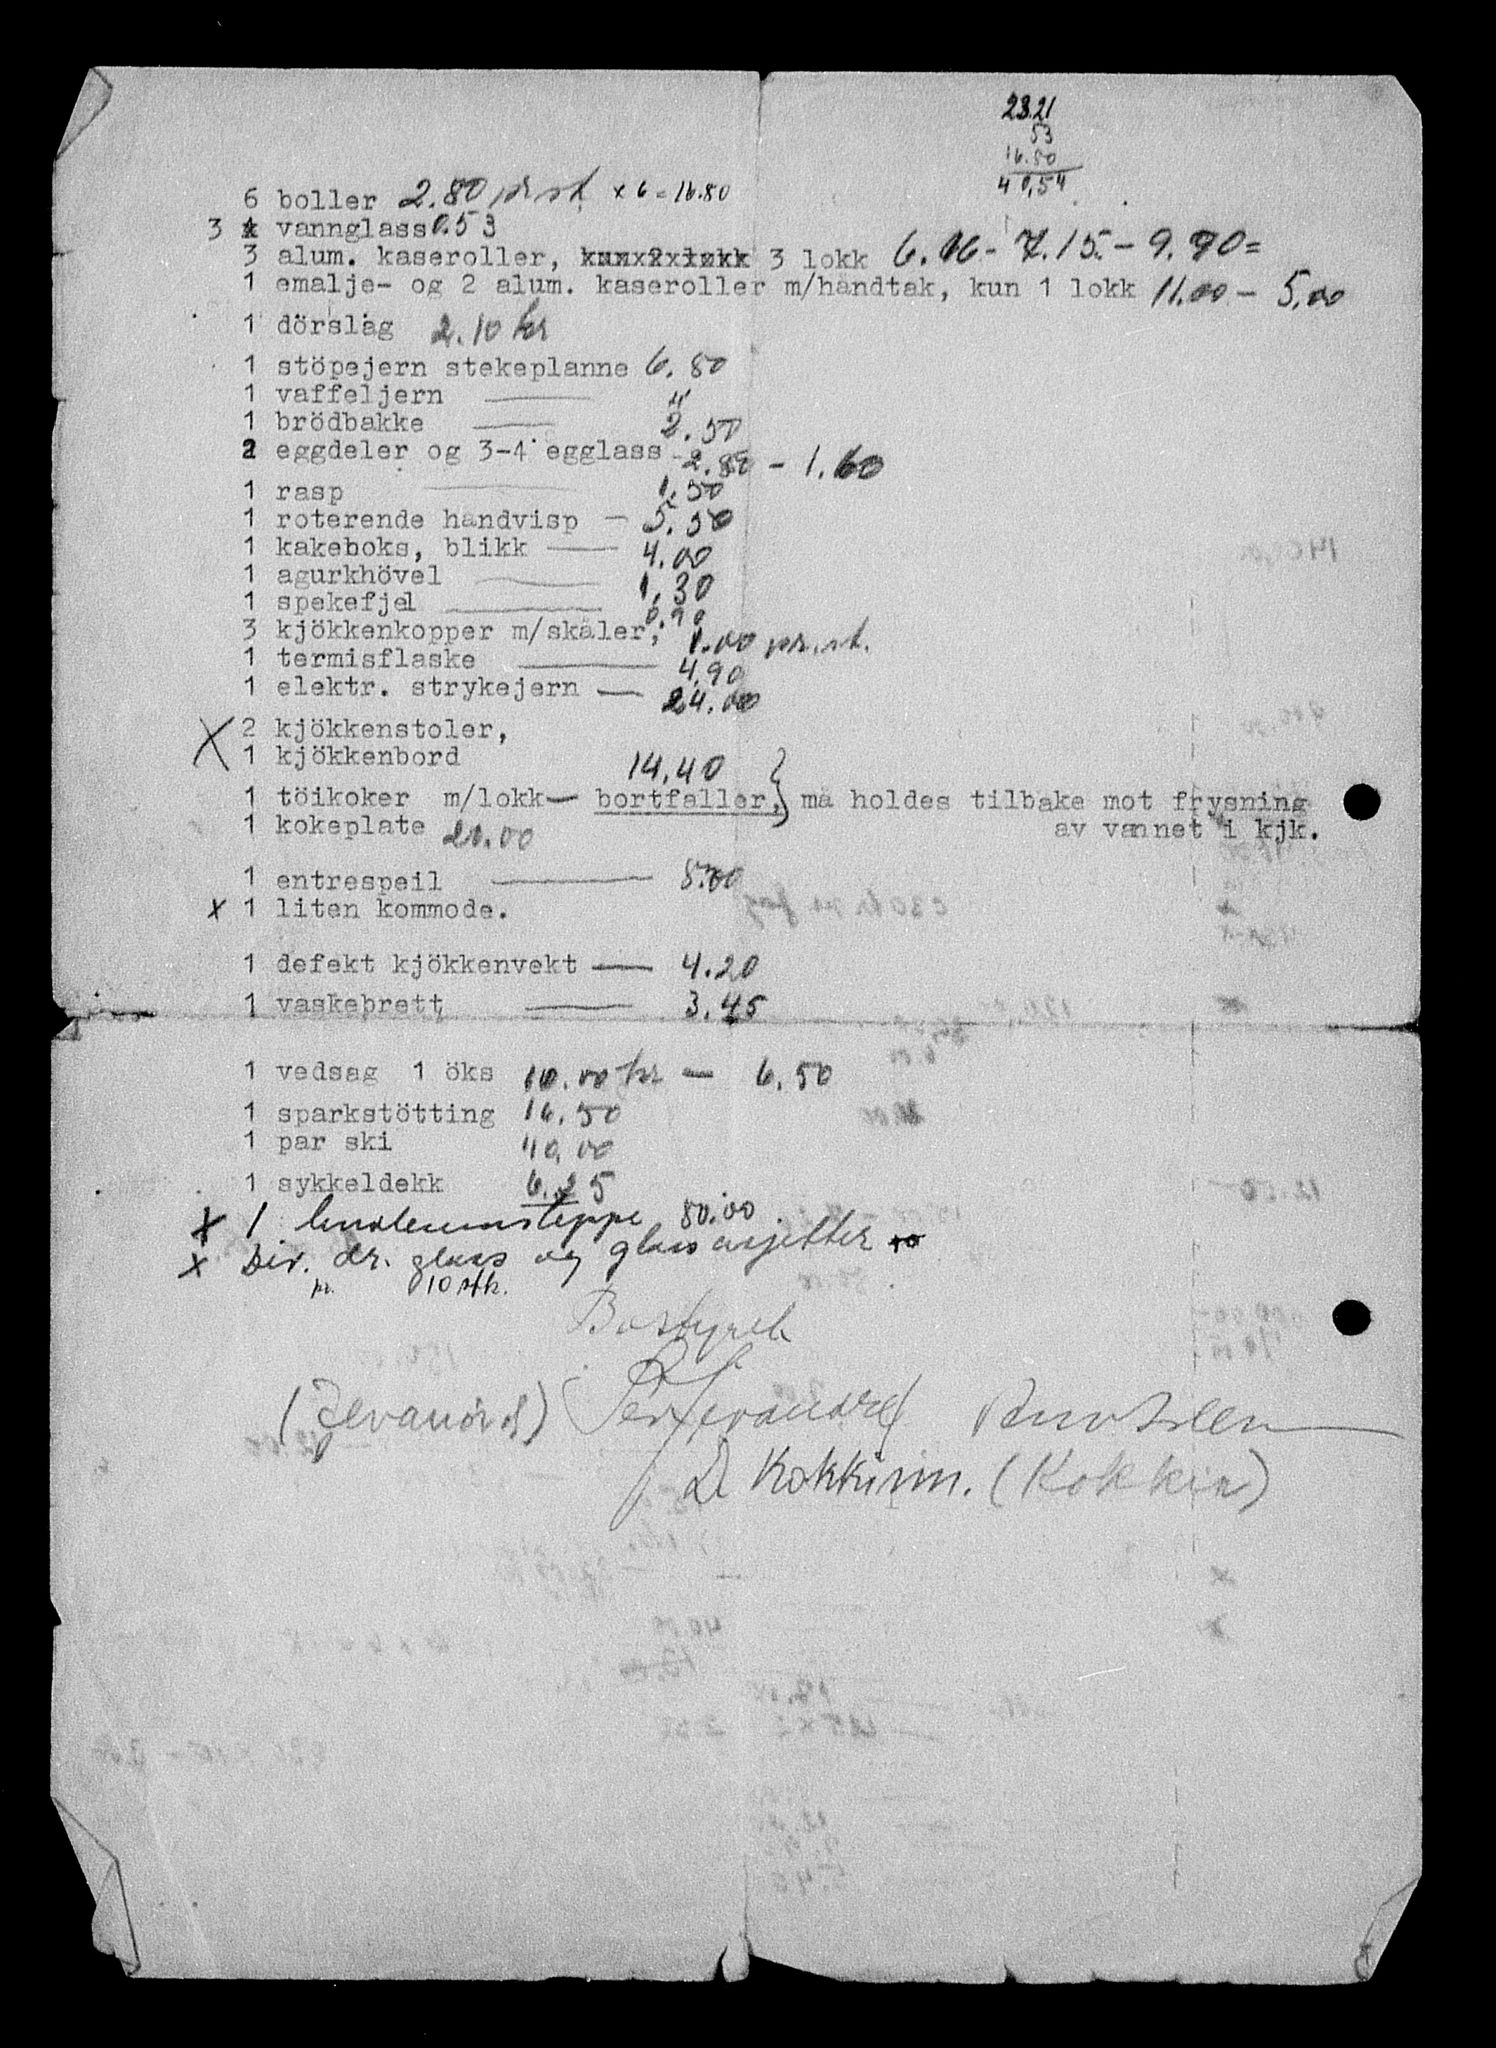 23.21
53
16.80
40,54
6 boller 2.80 pr st. x 6 = 16.80
3 vannglass 0.53
3 alum. kaseroller, kun 2 lokk 3 lokk 6.16 - 7.15 - 9.90 =
1 emalje- og 2 alum. kaseroller m/håndtak, kun 1 lokk 11.00 - 5.00
1 dörslag 2.10 kr
1 stöpejern stekeplanne 6.80
1 vaffeljern — "
1 brödbakke — 2.50
2 eggdeler og 3-4 egglass - 2.80 - 1.60
1 rasp — 1.50
1 roterende håndvisp — 5.50
1 kakeboks, blikk — 4.00
1 agurkhövel — 1.30
1 spekefjel — 0.90
3 kjökkenkopper m/skåler, 1.00 pr. st.
1 termisflaske — 4.90
1 elektr. strykejern — 24.00
X 2 kjökkenstoler,
1 kjökkenbord
14.40
1 töikoker m/lokk — bortfaller, } må holdes tilbake mot frysning
1 kokeplate 20.00 av vannet i kjk.
1 entrespeil — 8.00
x 1 liten kommode.
1 defekt kjökkenvekt — 4.20
1 vaskebrett — 3.45
1 vedsag 1 öks 10.00 kr — 6.50
1 sparkstötting 16.50
1 par ski 40.00
1 sykkeldekk 6.25
x 1 linoleumsteppe 80.00
x Div. dr. glass og glass asjetter
pr. 10 stk.
Bostyret
(Jevanord) Per Jevanord
D Kokkinn. (Kokkin)